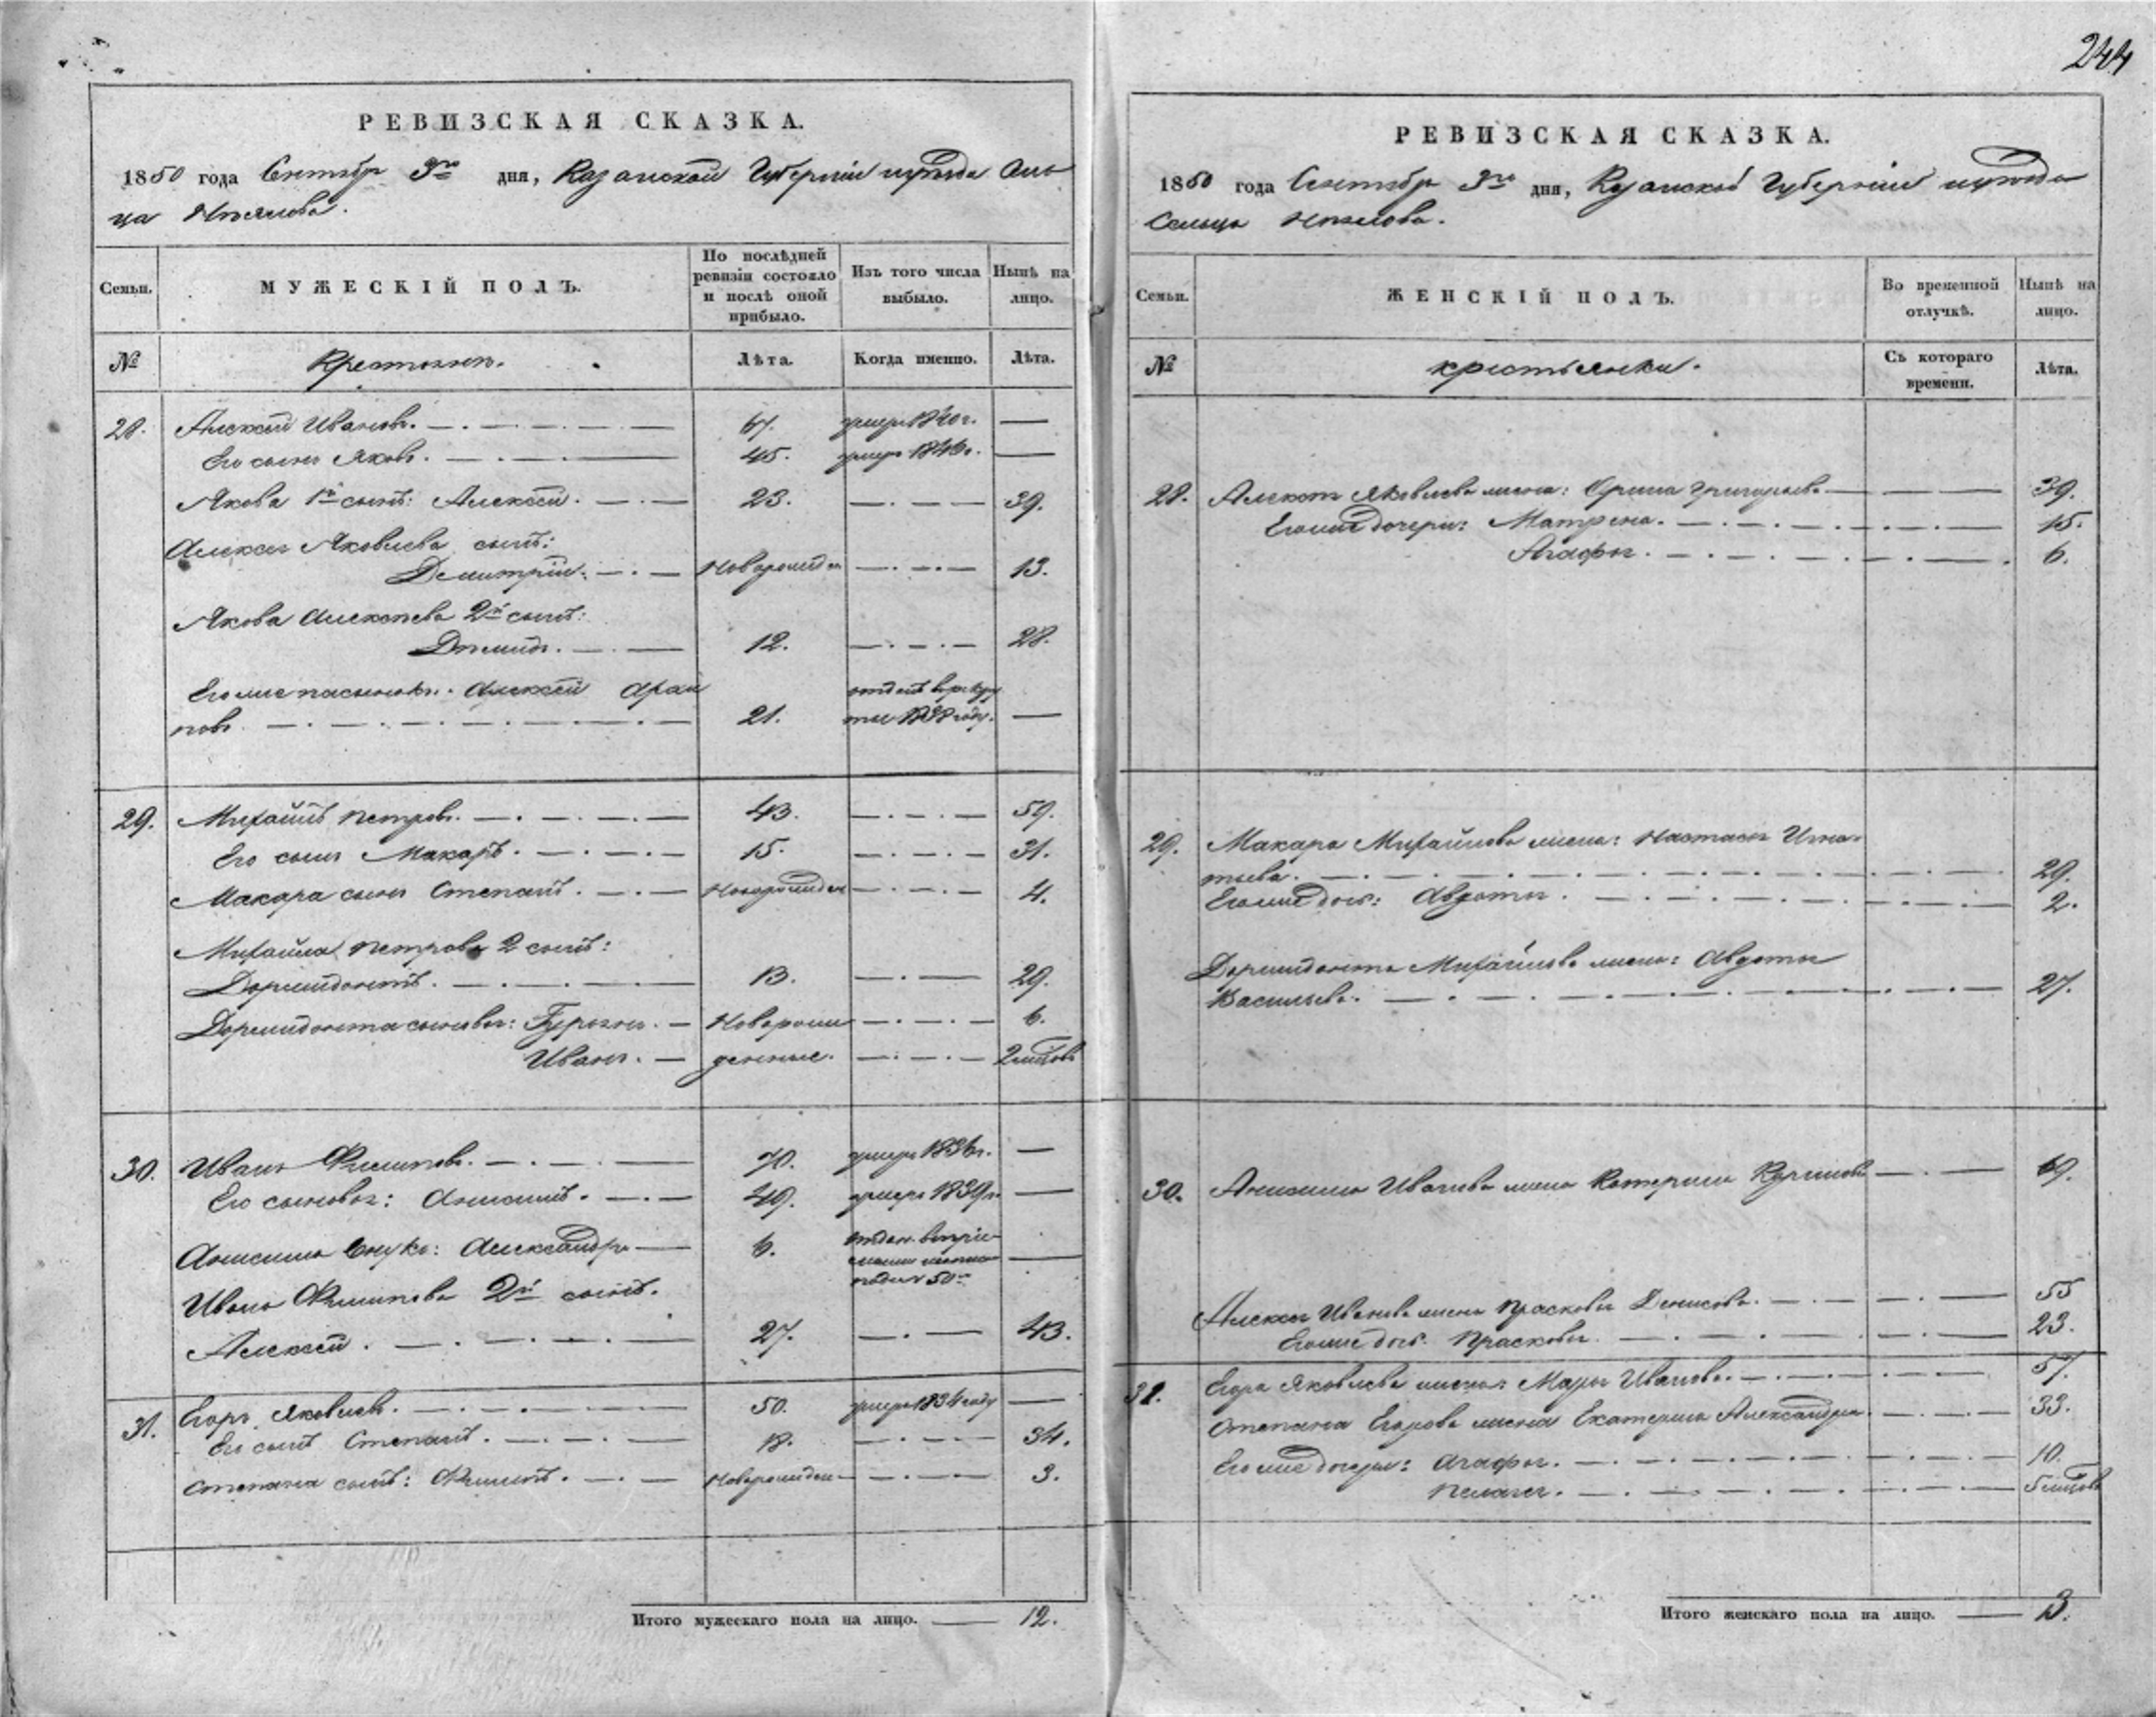 244
РЕВИЗСКАЯ СКАЗКА.
1850 года Сентября 3го дня, Казанской Губернии уезда Сель
ца
Семьи. МУЖЕСКІЙ ПОЛЪ. По послѣдней ревизіи состояло и послѣ оной прибыло. Изъ того числа выбыло. Нынѣ на лицо.
№ Крестьяне. Лѣта. Когда именно. Лѣта.
28. Алексѣй Ивановъ. 67. умеръ 1840 г. —
Его сынъ Яковъ. 45. умеръ 1846 г. —
Якова 1й сынъ: Алексѣй. 23. — 39.
Алексея Яковлева сынъ:
Демитрій. Новорожден — 13.
Якова Алексѣева 2й сынъ:
Демидъ. 12. — 28.
Его же пасынокъ. Алексѣй Архи отданъ в рекру
повъ. 21. ты 1838 году. —
29. Михайлъ Петровъ. 43. — 59.
Его сынъ Макаръ. 15. — 31.
Макара сынъ Степанъ. Новорожден — 4.
Михайла Петрова 2 сынъ:
Доримидонтъ. 13. — 29.
Доримидонта сыновья: — Новорож — 6.
Иванъ. — денные. — 2 мѣсцовъ
30. Иванъ Филиповъ. 70. умеръ 1836 г. —
Его сыновья: Анисимъ. 49. умеръ 1839 г. —
Анисима внукъ: Александръ — 6. отдан —
50
Ивана Филипова 2й сынъ.
Алексѣй. 27. — 43.
31. Егоръ Яковлевъ. 50. умеръ 1834 году —
Его сынъ Степанъ. 18. — 34.
Степана сынъ: Филипъ. Новорожден — 3.
Итого мужескаго пола на лицо. — 12.
РЕВИЗСКАЯ СКАЗКА.
1850 года Сентября 3го дня, Казанской Губернии уезда
Сельца
Семьи. ЖЕНСКІЙ ПОЛЪ. Во временной отлучкѣ. Нынѣ на лицо.
№ крестьянки. Съ котораго времени. Лѣта.
28. Алексея Яковлева жена: Орина Григорьева — 39.
Его же дочери: Матрена. — 15.
Агафья. — 6.
29. Макара Михайлова жена: Настасья Игна-
тьева. — 29.
Его же дочь: Авдотья. — 2.
Доримидонта Михайлова жена: Авдотья
Васильева. — 27.
30. Анисима Иванова жена Катерина — 69.
Алексея Иванова жена Прасковья Денисова. — 55
Его же дочь. Прасковья. — 23.
31. Егора Яковлева жена Марья Иванова. — 57.
Степана Егорова жена Екатерина Александрова. — 33.
Его же дочери: Агафья. — 10.
Пелагея. — 5 мѣсцовъ
Итого женскаго пола на лицо. — 13.